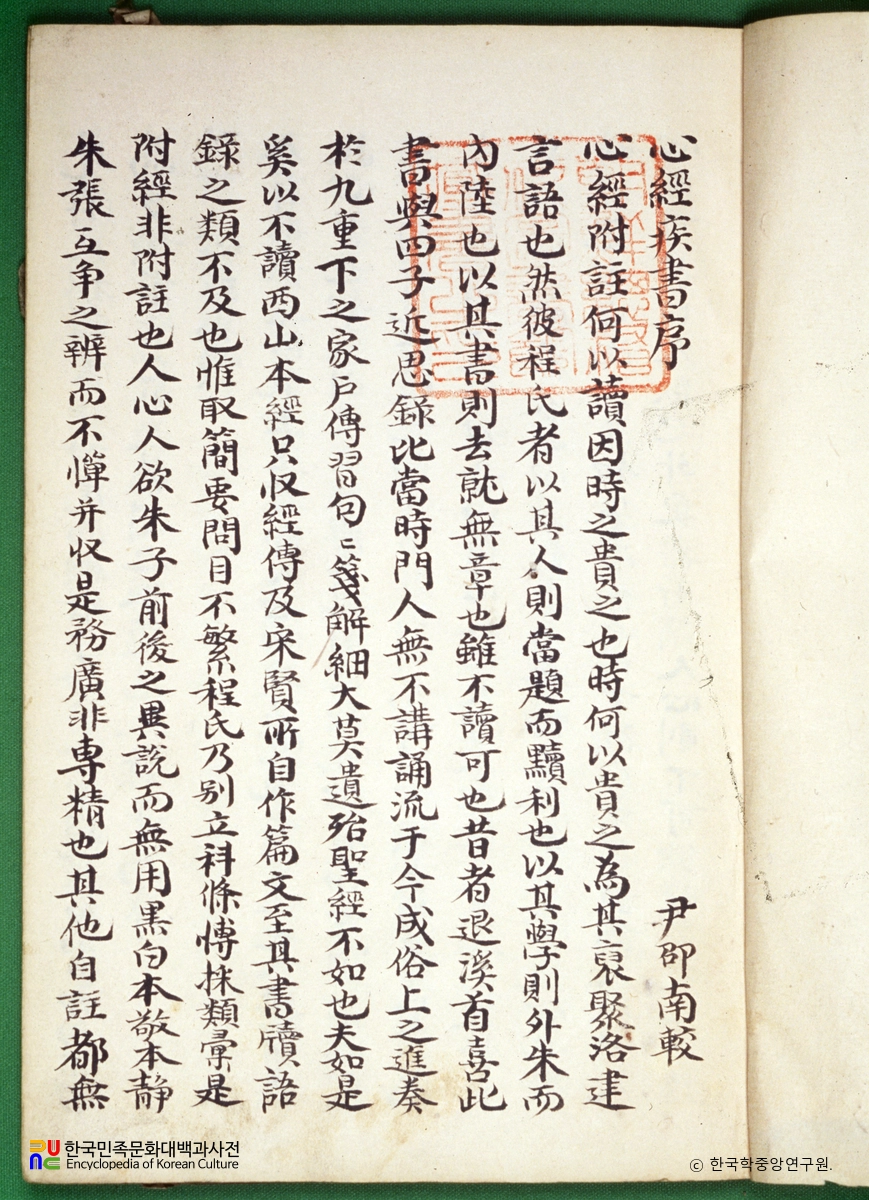 心經疾書序
尹卲南較
心經附註何以讀因時之貴之也時何以貴之為其裒聚洛建
言語也然彼程氏者以其人則當題而黷利也以其學則外朱而
內陸也以其書則去就無章也雖不讀可也昔者退溪首喜此
書與四子近思錄比當時門人無不講誦流于今成俗上之進奏
於九重下之家戶傳習句〻箋解細大莫遺殆聖經不如也夫如是
奚以不讀西山本經只収經傳及宋賢所自作篇文至其書牘語
錄之類不及也惟取簡要問目不繁程氏乃别立科條博採類彙是
附經非附註也人心人欲朱子前後之異說而無用黑白本敬本靜
朱張互争之辨而不憚并収是務廣非專精也其他自註都無
한국민족문화대백과사전
Encyclopedia of Korean Culture
© 한국학중앙연구원.